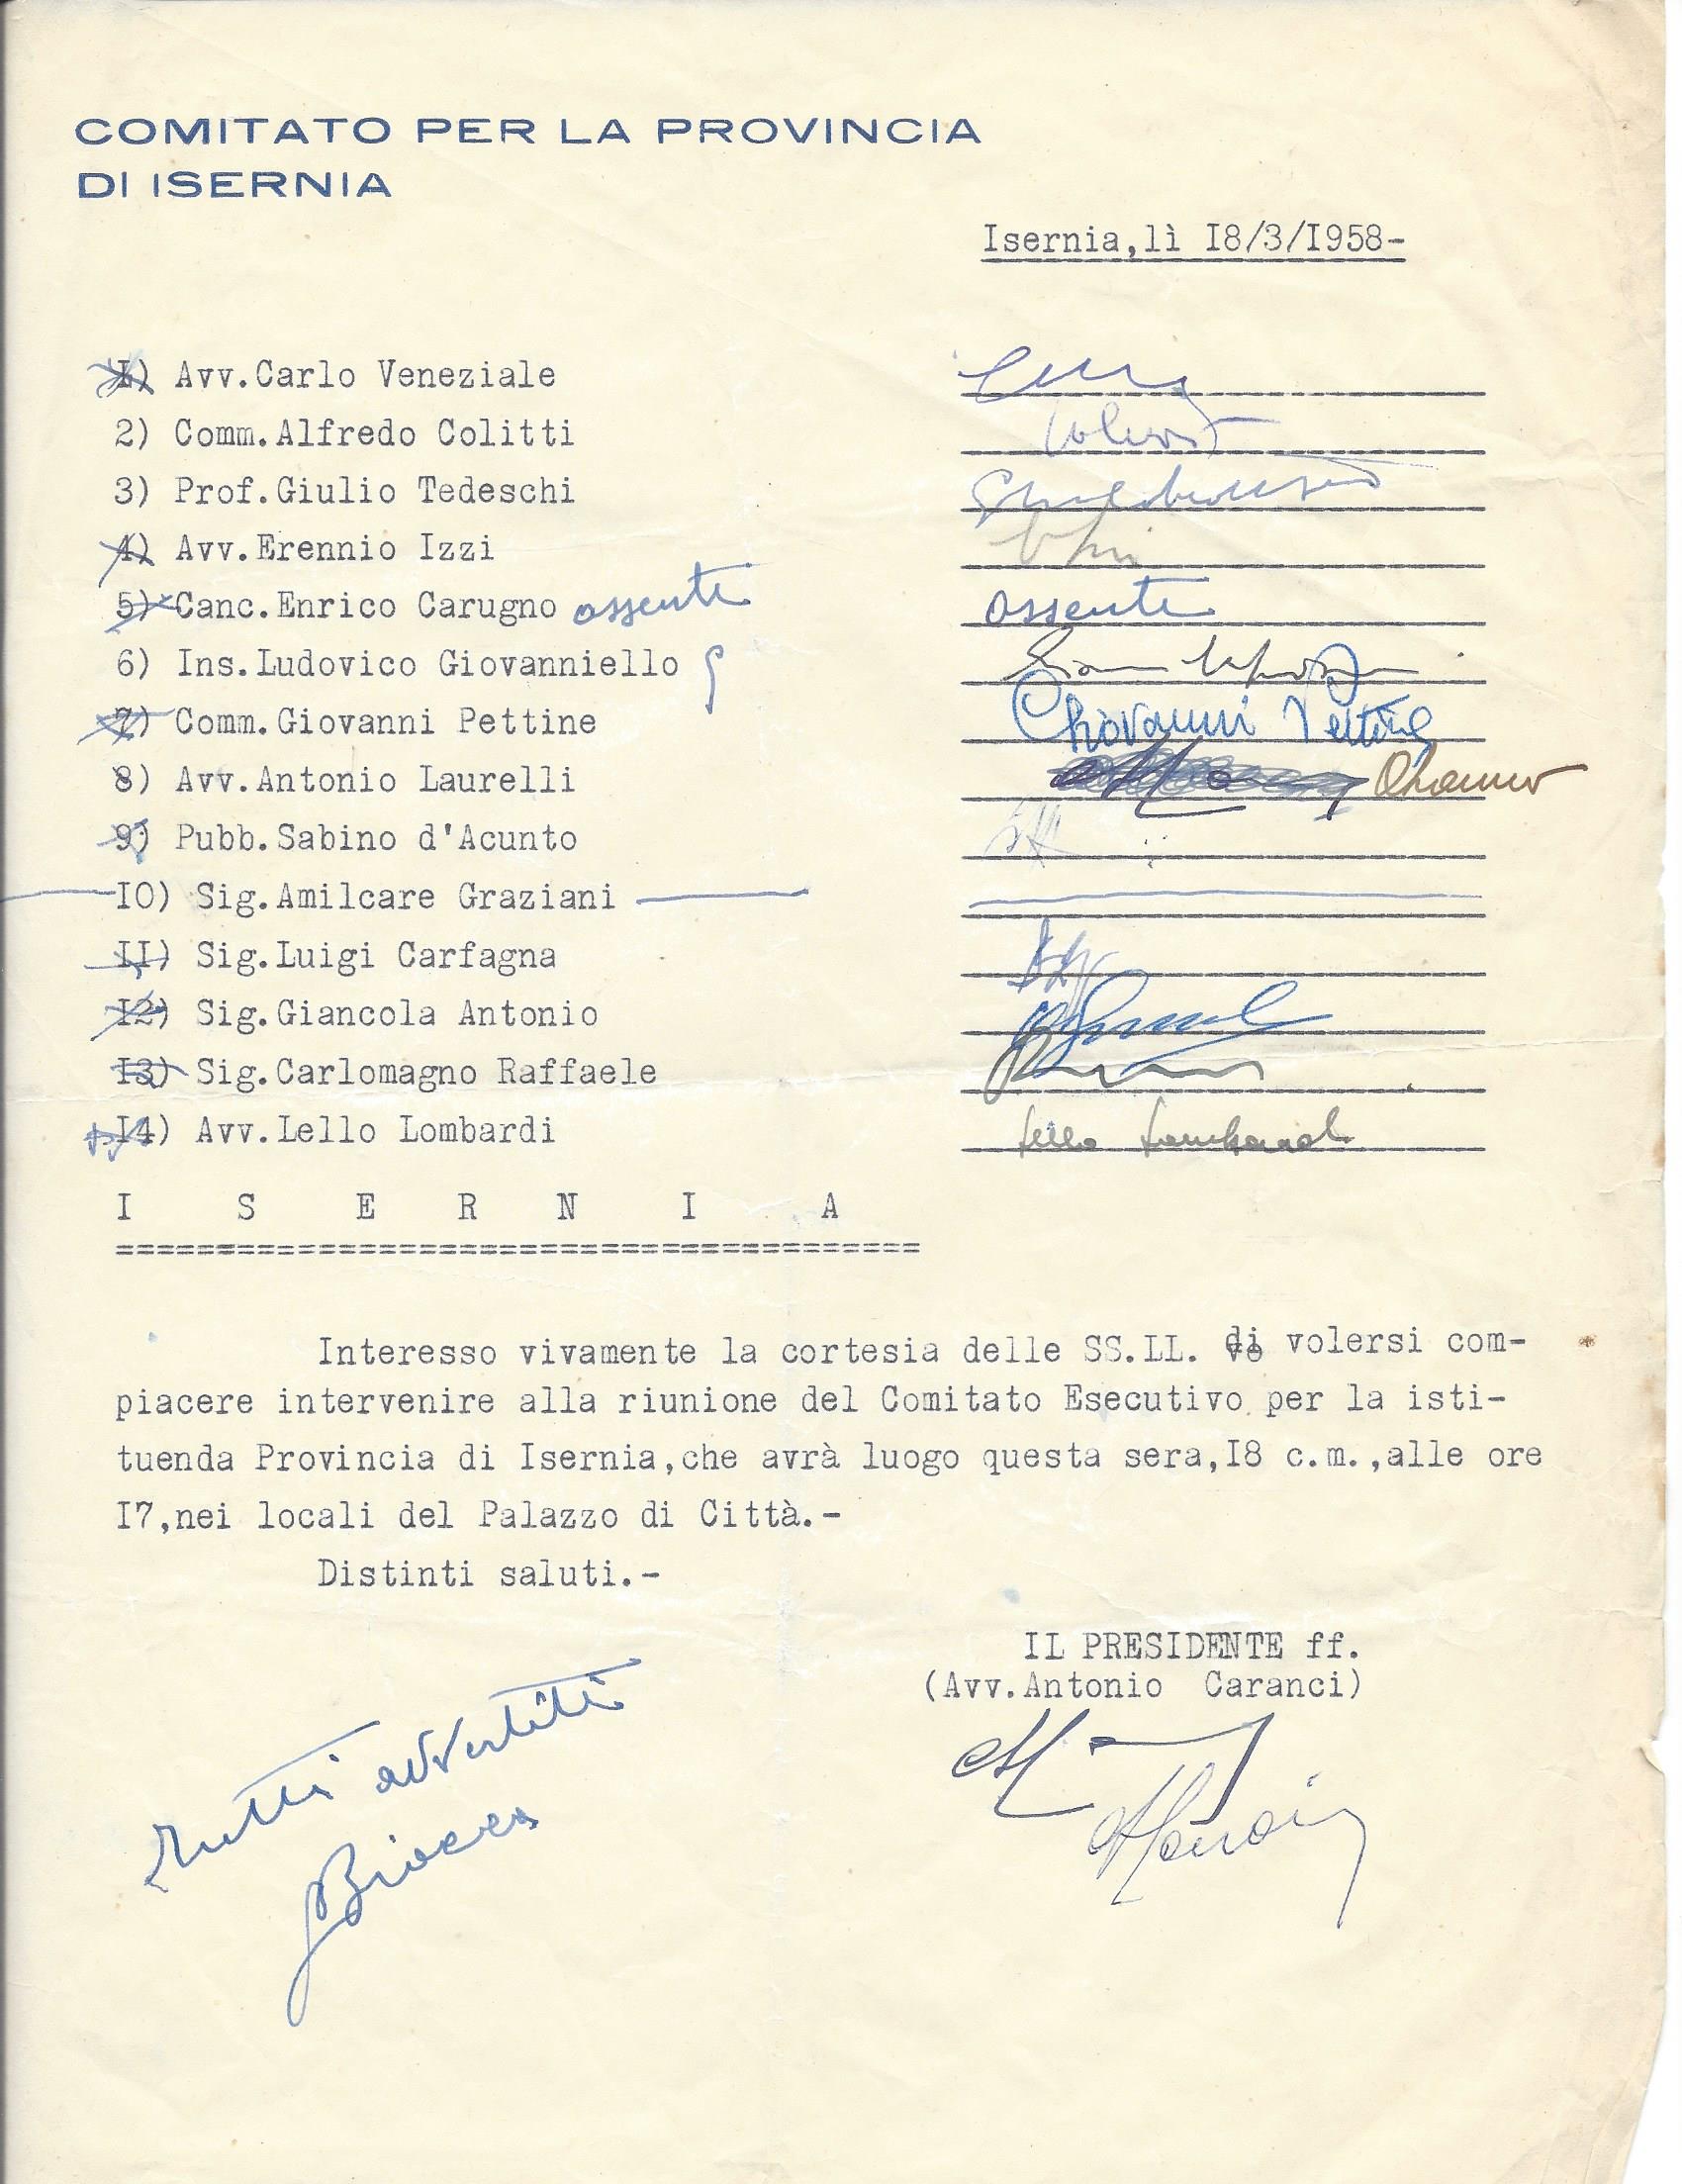 COMITATO PER LA PROVINCIA
DI ISERNIA
Isernia,lì I8/3/I958-
I) Avv.Carlo Veneziale
2) Comm.Alfredo Colitti
3) Prof.Giulio Tedeschi
4) Avv.Erennio Izzi
5) Canc.Enrico Carugno assente assente
6) Ins.Ludovico Giovanniello
7) Comm.Giovanni Pettine Giovanni Pettine
8) Avv.Antonio Laurelli
9) Pubb.Sabino d'Acunto
IO) Sig.Amilcare Graziani
II) Sig.Luigi Carfagna
I2) Sig.Giancola Antonio
I3) Sig.Carlomagno Raffaele
I4) Avv.Lello Lombardi Lello Lombardi
I S E R N I A
========================================
Interesso vivamente la cortesia delle SS.LL. di volersi com-
piacere intervenire alla riunione del Comitato Esecutivo per la isti-
tuenda Provincia di Isernia,che avrà luogo questa sera,I8 c.m.,alle ore
I7,nei locali del Palazzo di Città.-
Distinti saluti.-
IL PRESIDENTE ff.
(Avv.Antonio Caranci)
tutti avvertiti